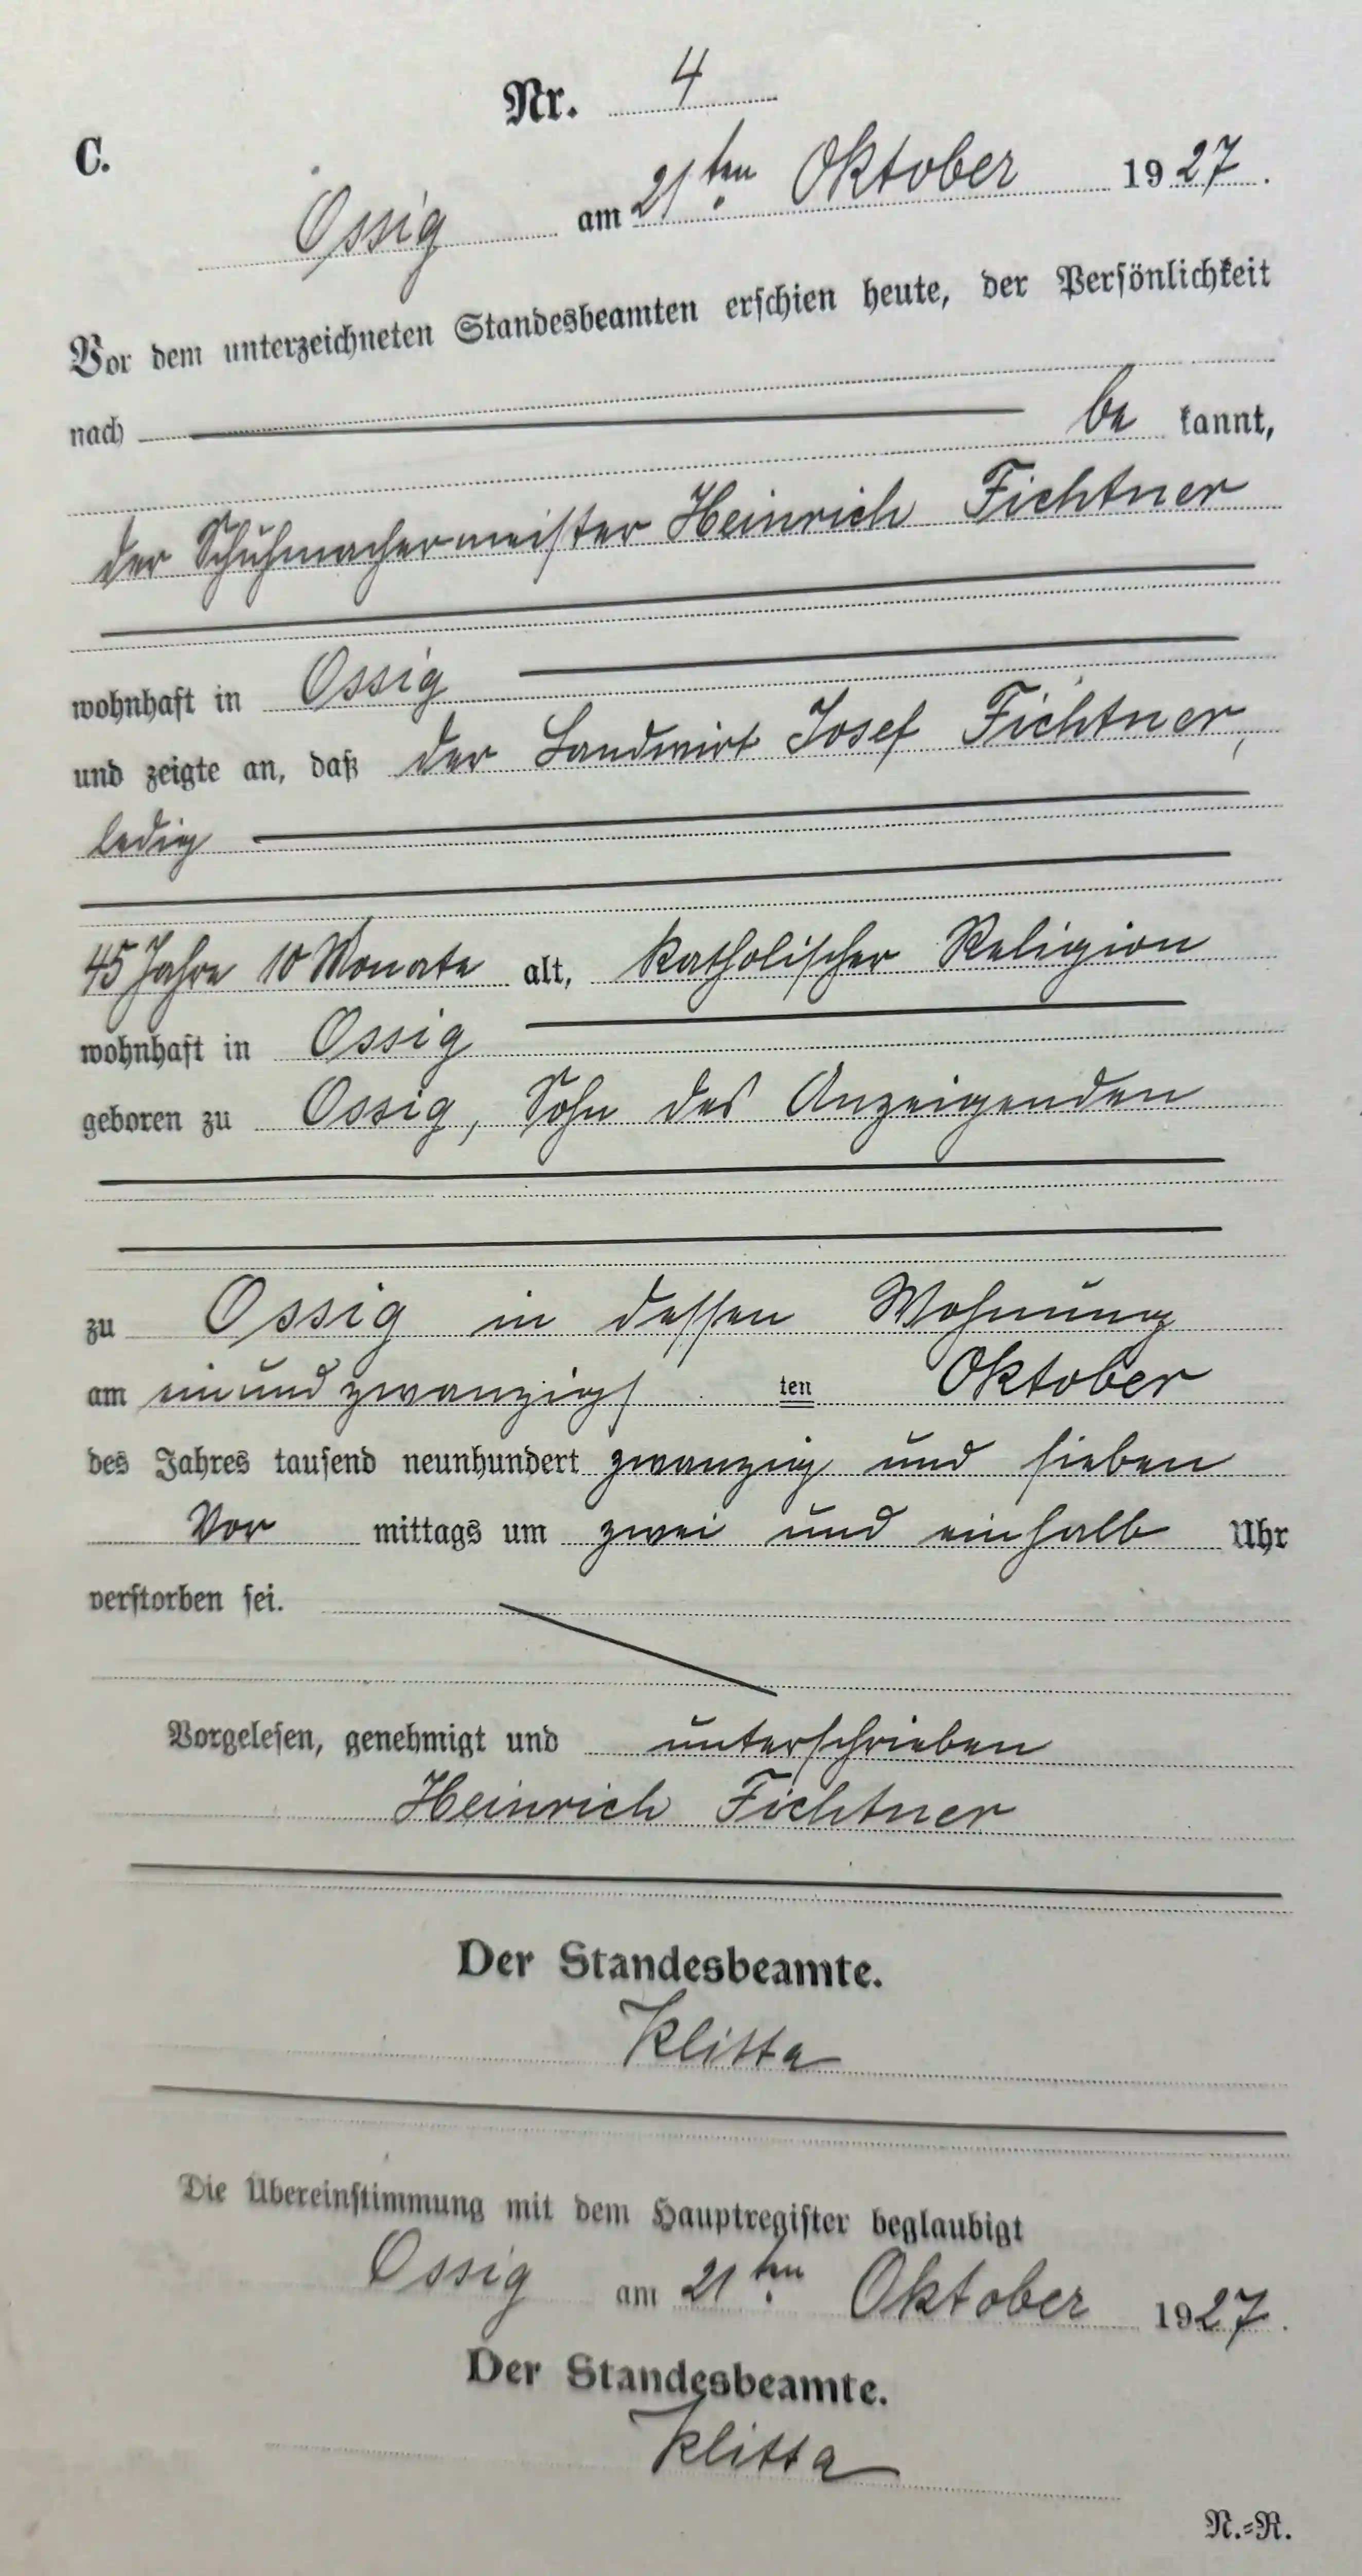 Nr. 4
C.
Ossig am 21ten Oktober 1927.
Vor dem unterzeichneten Standesbeamten erschien heute, der Persönlichkeit
nach be kannt,
der Schuhmachermeister Heinrich Fichtner
wohnhaft in Ossig
und zeigte an, daß der Landwirt Josef Fichtner,
ledig
45 Jahre 10 Monate alt, katholischer Religion
wohnhaft in Ossig
geboren zu Ossig, Sohn des Anzeigenden
zu Ossig in dessen Wohnung
am einundzwanzigs ten Oktober
des Jahres tausend neunhundert zwanzig und sieben
Vor mittags um zwei und einhalb Uhr
verstorben sei.
Vorgelesen, genehmigt und unterschrieben
Heinrich Fichtner
Der Standesbeamte.
Klitta
Die Übereinstimmung mit dem Hauptregister beglaubigt
Ossig am 21ten Oktober 1927.
Der Standesbeamte.
Klitta
N.=R.